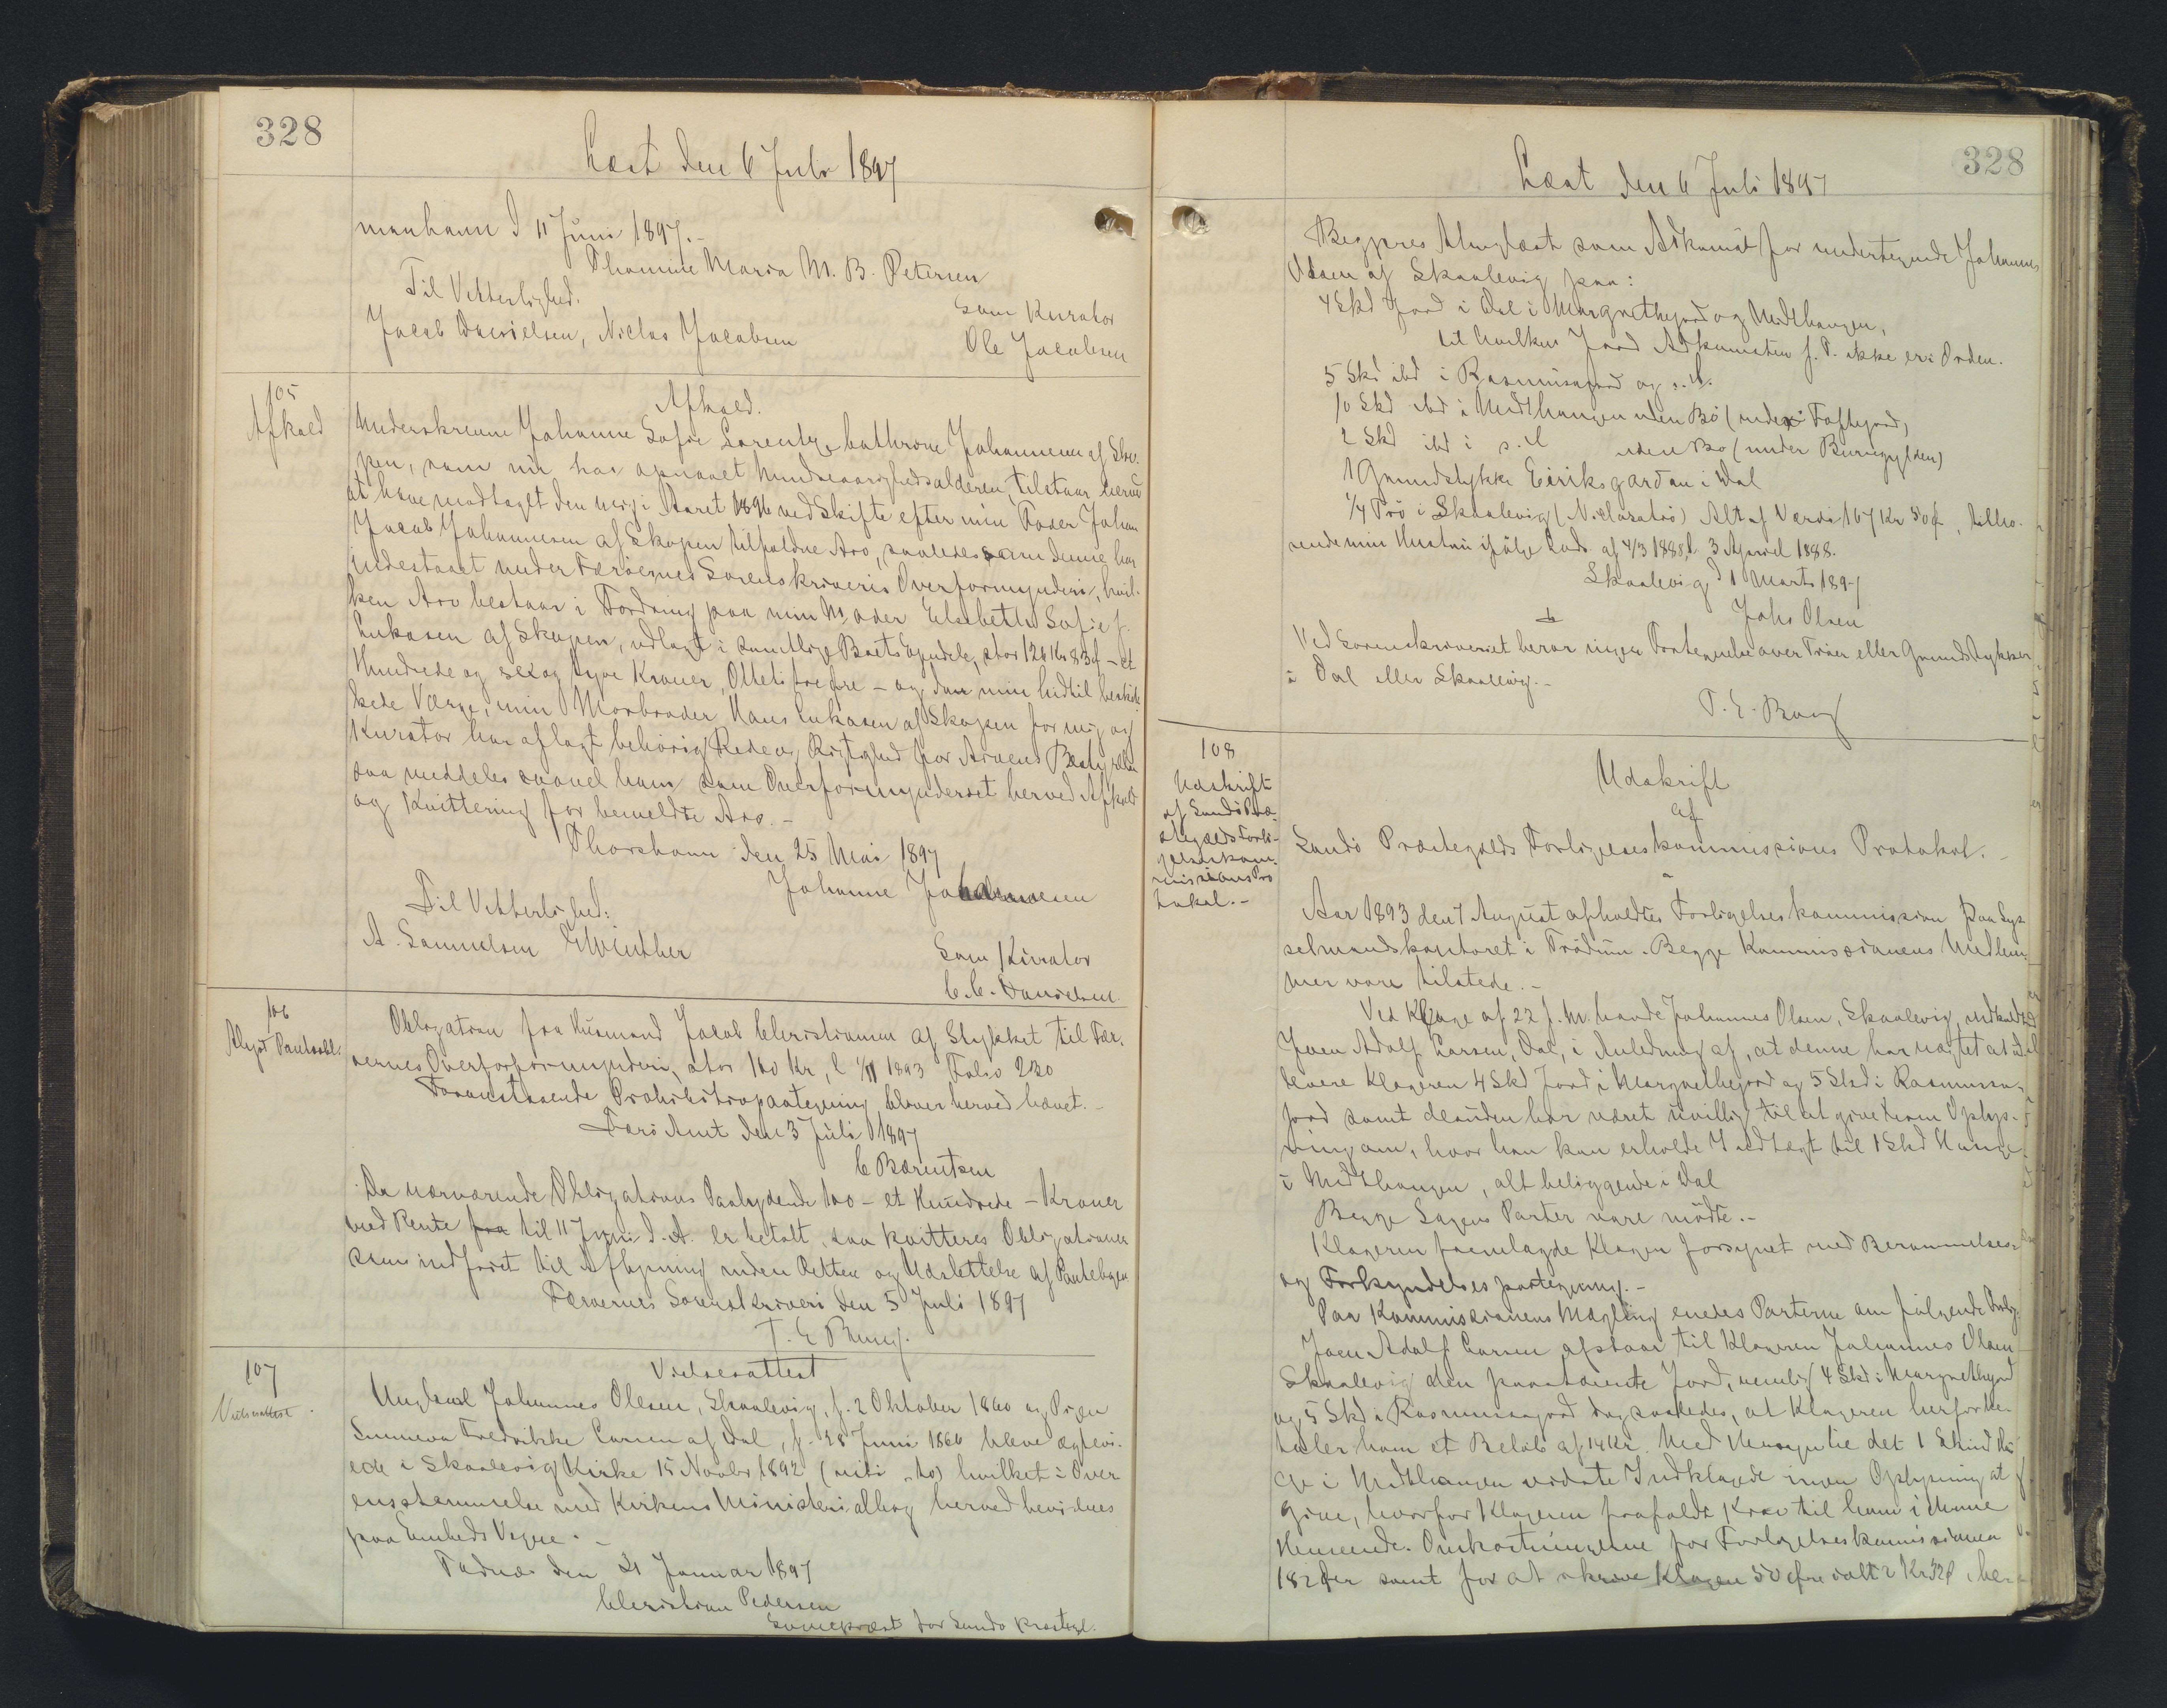 328
Læst den 6 Juli 1897
menhavn d 11 Juni 1897.-
Thomine Maria M. B. Petersen
Til Vitterlighed.
som Kurator
Jacob Danielsen, Niclas Jacobsen
Ole Jacobsen
105
Afkald
Afkald.
Underskrevne Johanne Sofie Lorentze Cathrine Johannesen af Sko-
pen, som nu har opnaaet Myndighedsalderen, tilstaar herved
at have modtaget den mig i Aaret 1896 ved Skifte efter min Fader Johan
Jacob Johannesen af Skopen tilfaldne Arv, saaledes som denne har
indestaaet under Færøernes Sorenskriveris Overformynderi, hvil-
ken Arv bestaar i Fordring paa min Moder Elsebeth Sofie f.
Lukasen af Skopen, udlagt i samtlige Boets Ejendele, stor 126 Kr 83 Ø - et
Hundrede og sex og tyve Kroner, Otteti tre Øre - og da min hidtil beskik-
kede Værge, min Morbroder Hans Lukasen af Skopen for mig og
Kurator har aflagt behørig Rede og Rigtighed for Arvens Bestyrelse
saa meddeles saavel ham som Overformynderiet herved Afkald
og Kvittering for bemeldte Arv. -
Thorshavn den 25 Mai 1897
Johanne Johannesen
Til Vitterlighed:
A. Samuelsen EWinther
Som Kurator
C. C. Danielsen
106
Aflyst Panteobl.
Obligation fra Husmand Jacob Christiansen af til Fær-
øernes Overformynderi, stor 100 Kr, l 1/11 1893 Folio 230
Foranstaaende Prohibitivpaategning bliver herved hævet. -
Færø Amt den 3 Juli 1897
C Bærentsen
Da nærværende Obligations Paalydende 100 - et Hundrede - Kroner
med Rente fra til 11 Juni d. A. er betalt, saa kvitteres Obligationen
som indfriet til Aflysning inden Retten og Udslettelse af Pantebogen
Færøernes Sorenskriveri den 5 Juli 1897
T. E. Bang.
107
Vielsesattest.
Vielsesattest
Ungkarl Johannes Olsen, Skaalevig, f. 2 Oktober 1860 og Pigen
Sunneva Fredrikke Larsen af Dal, f. 28 Juni 1866 bleve ægtevi-
ede i Skaalevig Kirke 15 Novbr 1892 hvilket i Over-
ensstemmelse med Kirkens Ministerialbog herved bevidnes
paa Embeds Vegne. -
den 21 Januar 1897
Christian Pedersen
Sognepræst for Sandø Præstegl.
328
Læst den 6 Juli 1897
Begjæres tinglæst som Adkomst for undertegnede Johannes
Olsen af Skaalevig paa:
4 Skd Jord i Dal i Margrethejord og Midthaugen,
til hvilken Jord Adkomsten p. T. ikke er i Orden.
5 Skd ibd i Rasmussajord og s. st.
10 Skd ibd i Midthaugen uden Bø (under Toftejord)
2 Skd ibd i s. st uden Bø (under Burugylden)
1 Grundstykke Eiriksgardan i Dal
1/4 Trø i Skaalevig (Niclasatrø) Alt af Værdi 167 Kr 50 Ø, tilhø-
rende min Hustru ifølge Lods. af 4/3 1888, l. 3 April 1888.
Skaalevig d 1 Marts 1897
Johs Olsen
Ved Sorenskriveriet beror ingen Fortegnelse over Trøer eller Grundstykker
i Dal eller Skaalevig. -
T. E. Bang
108
Udskrift
af Sandø Præ-
stegjælds Forli-
gelseskom-
missions Pro
tokol. -
Udskrift
af
Sandø Præstegjælds Forligelseskommissions Protokol. -
Aar 1893 den 7 August afholdtes Forligelseskommission paa Sys-
selmandskontoret i Trødum. Begge Kommissionens Medlem-
mer vare tilstede. -
Ved Klage af 22 f. M. havde Johannes Olsen, Skaalevig, indkaldt
Joen Adolf Larsen, Dal, i Anledning af, at denne har nægtet at ud-
levere Klageren 4 Skd Jord i Margrethejord og 5 Skd i Rasmussa-
jord samt desuden har været uvillig til at give ham Oplys-
ning om, hvor han kan erholde Indtægt til 1 Skd Hauge
i Midthaugen, alt beliggende i Dal
Begge Sagens Parter vare mødte. -
Klageren fremlagde Klagen forsynet med Berammelses-
og Forkyndelsespaategning. -
Paa Kommissionens Mægling enedes Parterne om følgende Forlig:
Joen Adolf Larsen afstaar til Klageren Johannes Olsen
Skaalevig den paastævnte Jord, nemlig 4 Skd i Margrethejord
og 5 Skd i Rasmussajord dog saaledes, at Klageren herfor be-
taler ham et Beløb af 14 Kr. Med Hensyn til det 1 Skind Hau
ge i Midthaugen vidste Indklagede ingen Oplysning at
give, hvorfor Klageren frafaldt Krav til ham i denne
Henseende. Omkostningerne for Forligelseskommissionen
182 Øre samt for at skrive Klagen 50 Øre ialt 2 Kr 32 Ø, be-